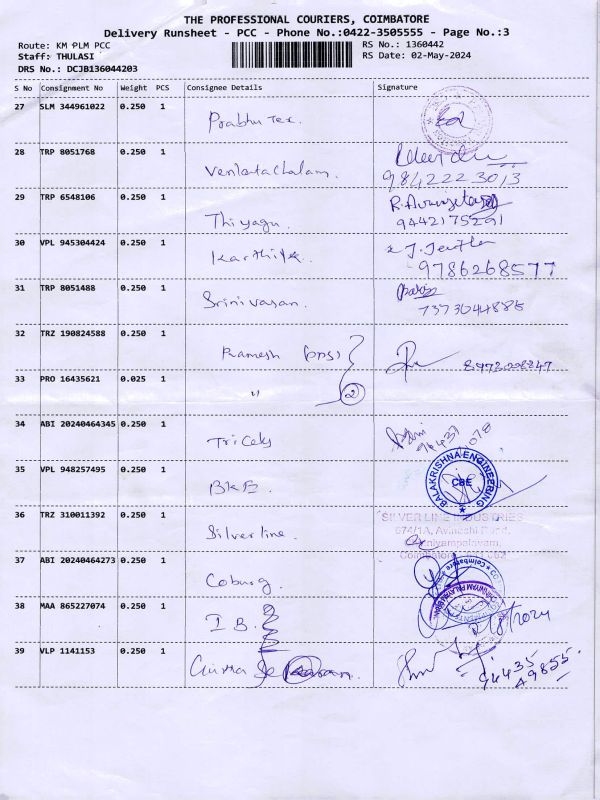 THE PROFESSIONAL COURIERS, COIMBATORE
Delivery Runsheet - PCC - Phone No.:0422-3505555 - Page No.:3
Route: KM PLM PCC RS No.: 1360442
Staff: THULASI RS Date: 02-May-2024
DRS No.: DCJB136044203
S No Consignment No Weight PCS Consignee Details Signature
27 SLM 344961022 0.250 1 Prabhu Tex.
28 TRP 8051768 0.250 1 Venkatachalam.
9842223013
29 TRP 6548106 0.250 1 Thiyagu.
9442175291
30 VPL 945304424 0.250 1 Karthik
9786268577
31 TRP 8051488 0.250 1 Srinivasan.
7373044885
32 TRZ 190824588 0.250 1 Ramesh (pps)
33 PRO 16435621 0.025 1 " 2
34 ABI 20240464345 0.250 1
35 VPL 948257495 0.250 1 BKE
BALAKRISHNA ENGINEERING
CBE
36 TRZ 310011392 0.250 1 Silverline.
SILVER LINE INDUSTRIES
674/1A, Avinashi Road,
37 ABI 20240464273 0.250 1 Coburg.
Coimbatore
38 MAA 865227074 0.250 1 I B.
39 VLP 1141153 0.250 1
94435
49855